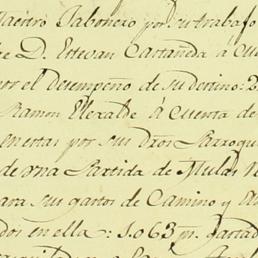 Maestro Jabonero por su trabajo
D. Estevan Castañeda á cu
por el desempeño de su destino: 2
Ramon Elexalde á Cuenta de
por sus dros Parroqu
de una Partida de Mulas
para sus gastos de Camino y
en ella: 1.063 p. gastad